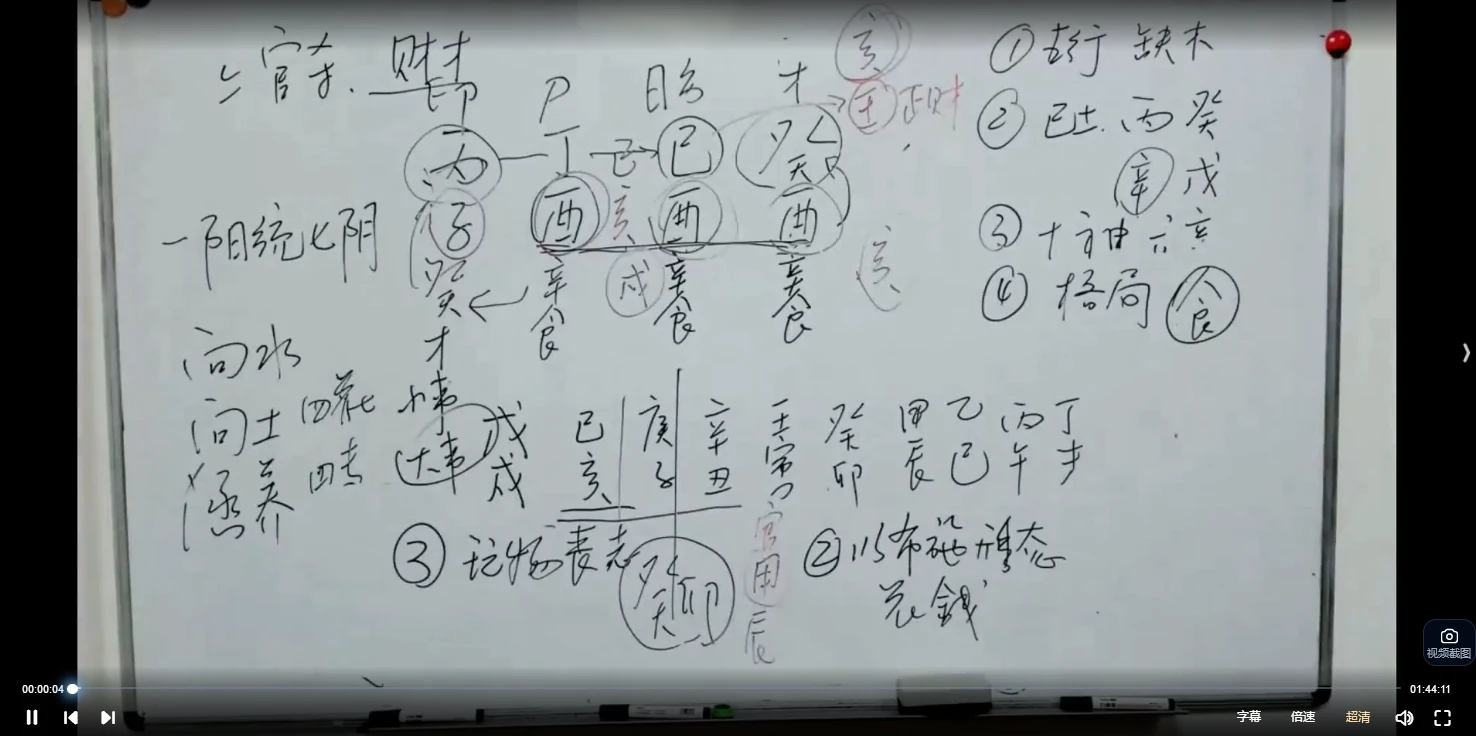 官杀. 财才
印 P 日主 才
丙 丁 己 己 癸 壬 正财 亥
子 酉 亥 酉 酉 亥
癸 辛 戌 辛 辛
才 食 食 食
一阳统七阴
① 五行 缺木
② 己土. 丙 癸
辛 戊
③ 十神 六亲
④ 格局 食
向水
向土 四藏 小事
涵养 大事
戊 己 庚 辛 壬 癸 甲 乙 丙 丁
戌 亥 子 丑 寅 卯 辰 巳 午 未
③ 玩物丧志
癸卯
官
用
辰
② 以布施形态
花錢
视频截图
00:00:04
01:44:11
字幕 倍速 超清